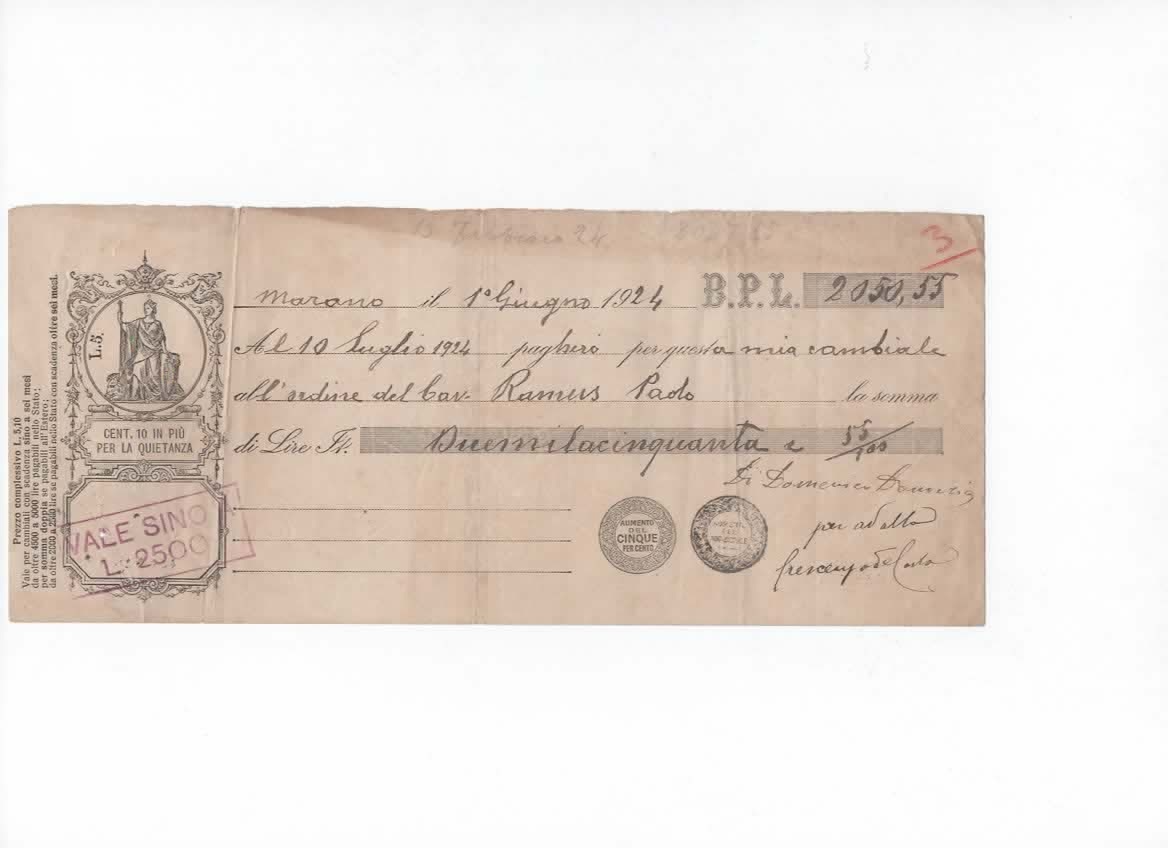 3
Marano il 1° Giugno 1924 B.P.L. 2050,55
Al 10 Luglio 1924 pagherò per questa mia cambiale
all'ordine del Cav. Ramus Paolo la somma
di Lire It. Duemilacinquanta e 55/100
Di Domenico
per avallo
L.5.
CENT. 10 IN PIÙ
PER LA QUIETANZA
VALE SINO
L. 2500
AUMENTO
DEL
CINQUE
PER CENTO
Prezzo complessivo L. 5,10
Vale per cambiali con scadenza sino a sei mesi
da oltre 4500 a 5000 lire pagabili nello Stato;
per somma doppia se pagabili all'Estero;
da oltre 2000 a 2500 lire se pagabili nello Stato con scadenza oltre sei mesi.